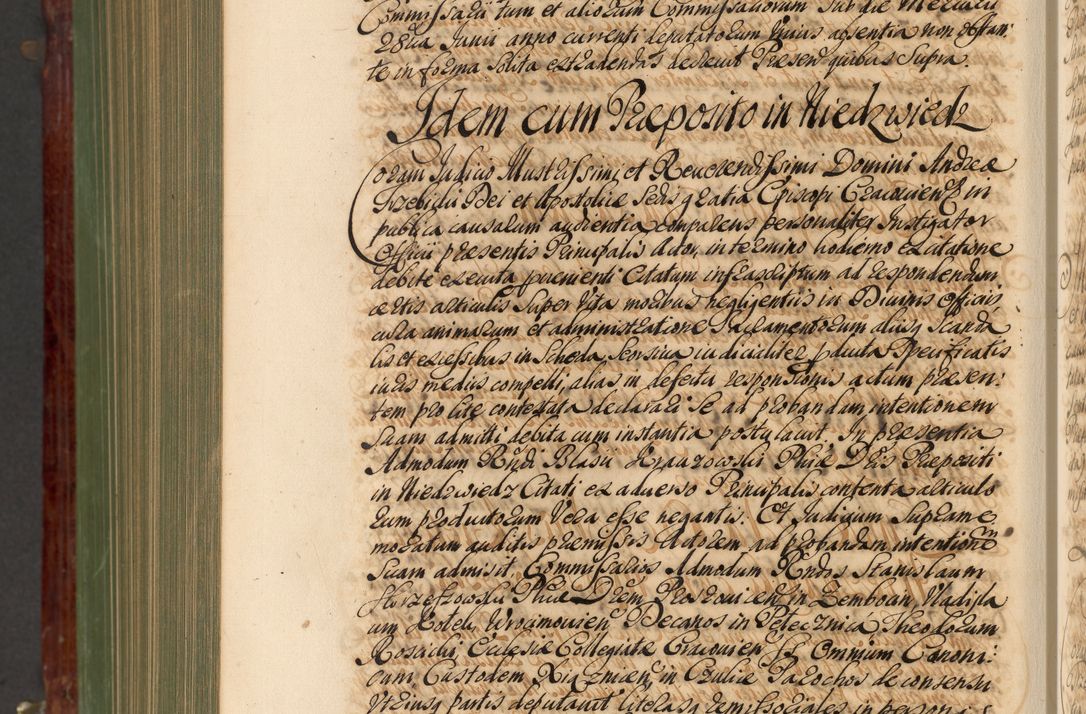 Commissarii tum et aliorum Commissariorum sub die Mercurii
28va Junii anno currenti deputatorum Unius absentia non obstan
te in forma solita extradendas decrevit Praesen quibus supra.
Idem cum Praeposito in Niedzwiedz
Coram Judicio Illustrissimi et Reverendissimi Domini Andreae
Trzebicki Dei et Apostolicae Sedis gratia Episcopi Cracovien in
publica causarum audientia comparens personaliter Instigator
Officii praesentis Principalis Actor, in termino hodierno ex citatione
debite executa provenienti Citatum infrascriptum ad respondendum
certis articulis super Vita moribus negligentiis in Divinis officiis
cura animarum et administratione Sacramentorum aliisq scanda
lis et excessibus in Scheda seorsiva iudicialiter producta specificatis
iuris mediis compelli, alias in defectu responsionis actum praesen:
tem pro lite contestata declarari se ad probandam intentionem
suam admitti debita cum instantia postulavit. In praesentia
Admodum Rndi Blasii Krauzowski Phiae Dris Praepositi
in Niedzwiedz Citati ex adverso Principalis contenta articulo
rum productorum Vera esse negantis. Et Judicium Suprame
moratum auditis praemissis Actorem ad probandam intentionem
suam admisit, Commissarios Admodum Rndos Stanislaum
Phiae Drem Proszovien in Zemboan, Vladisla
um Wrocimovien Decanos in Pelecznica, Theodorum
Ecclesiae Collegiatae Cracovien SS. Omnium Canoni:
cum Custodem in Czulice Parochos de consensu
Utriusq partis deputavit literasq remissoriales in persona